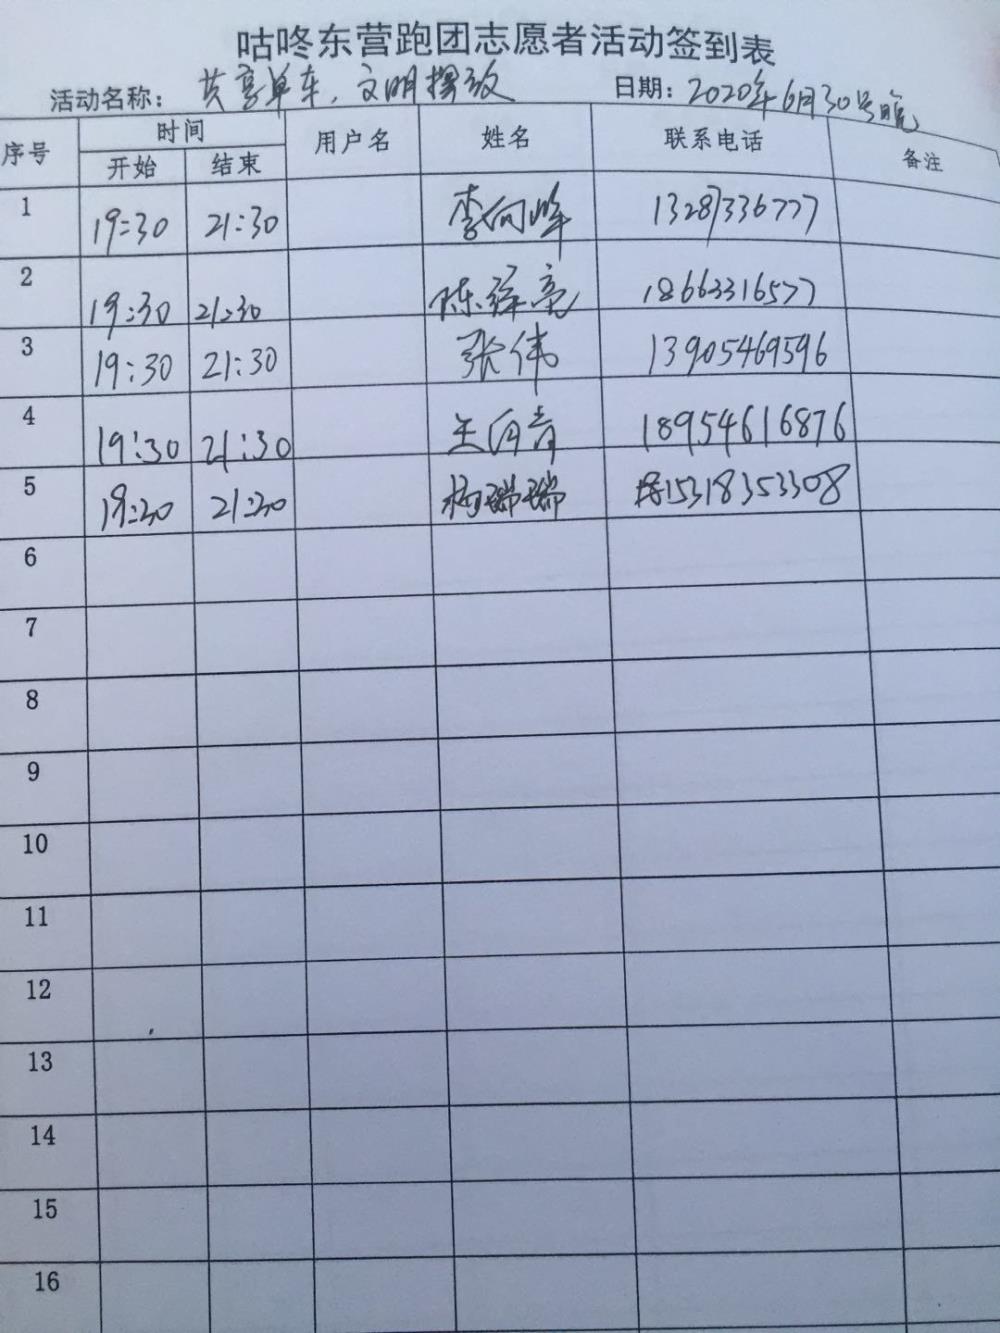 咕咚东营跑团志愿者活动签到表
活动名称：共享单车，文明摆放 日期：2020年6月30号晚
序号 时间 用户名 姓名 联系电话 备注
开始 结束
1 19:30 21:30 李向峰 13287336777
2 19:30 21:30 陈泽亮 18663316577
3 19:30 21:30 张伟 13905469596
4 19:30 21:30 王 18954616876
5 19:30 21:30 杨瑞瑞 15318353308
6
7
8
9
10
11
12
13
14
15
16